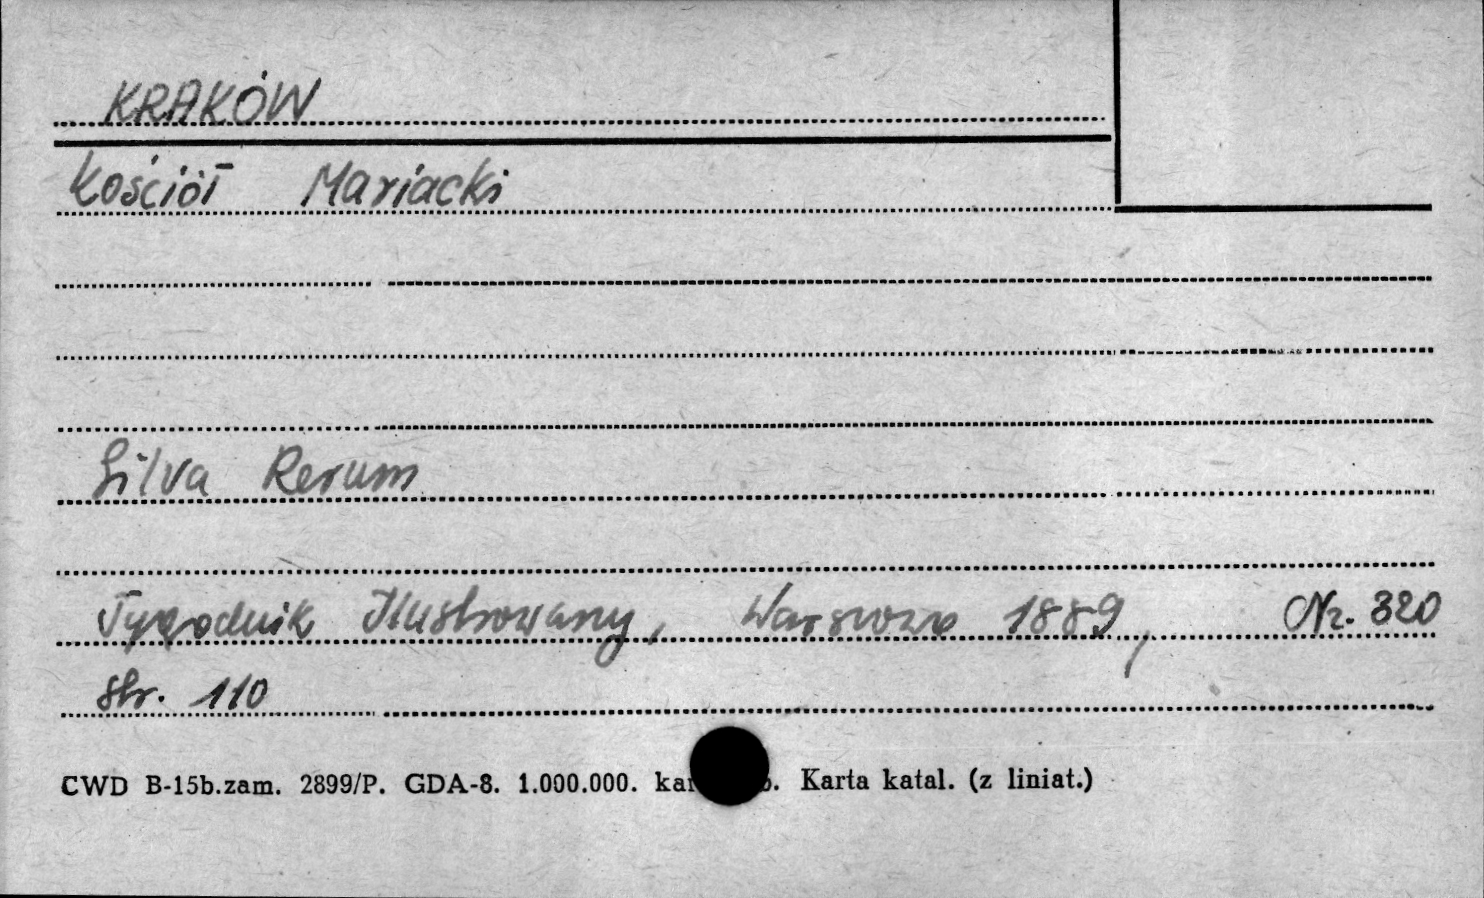 KRAKÓW
Kościół Mariacki
Silva Rerum
Tygodnik Ilustrowany, Warszawa 1889, Nr. 320
str. 110
CWD B-15b.zam. 2899/P. GDA-8. 1.000.000. Karta katal. (z liniat.)